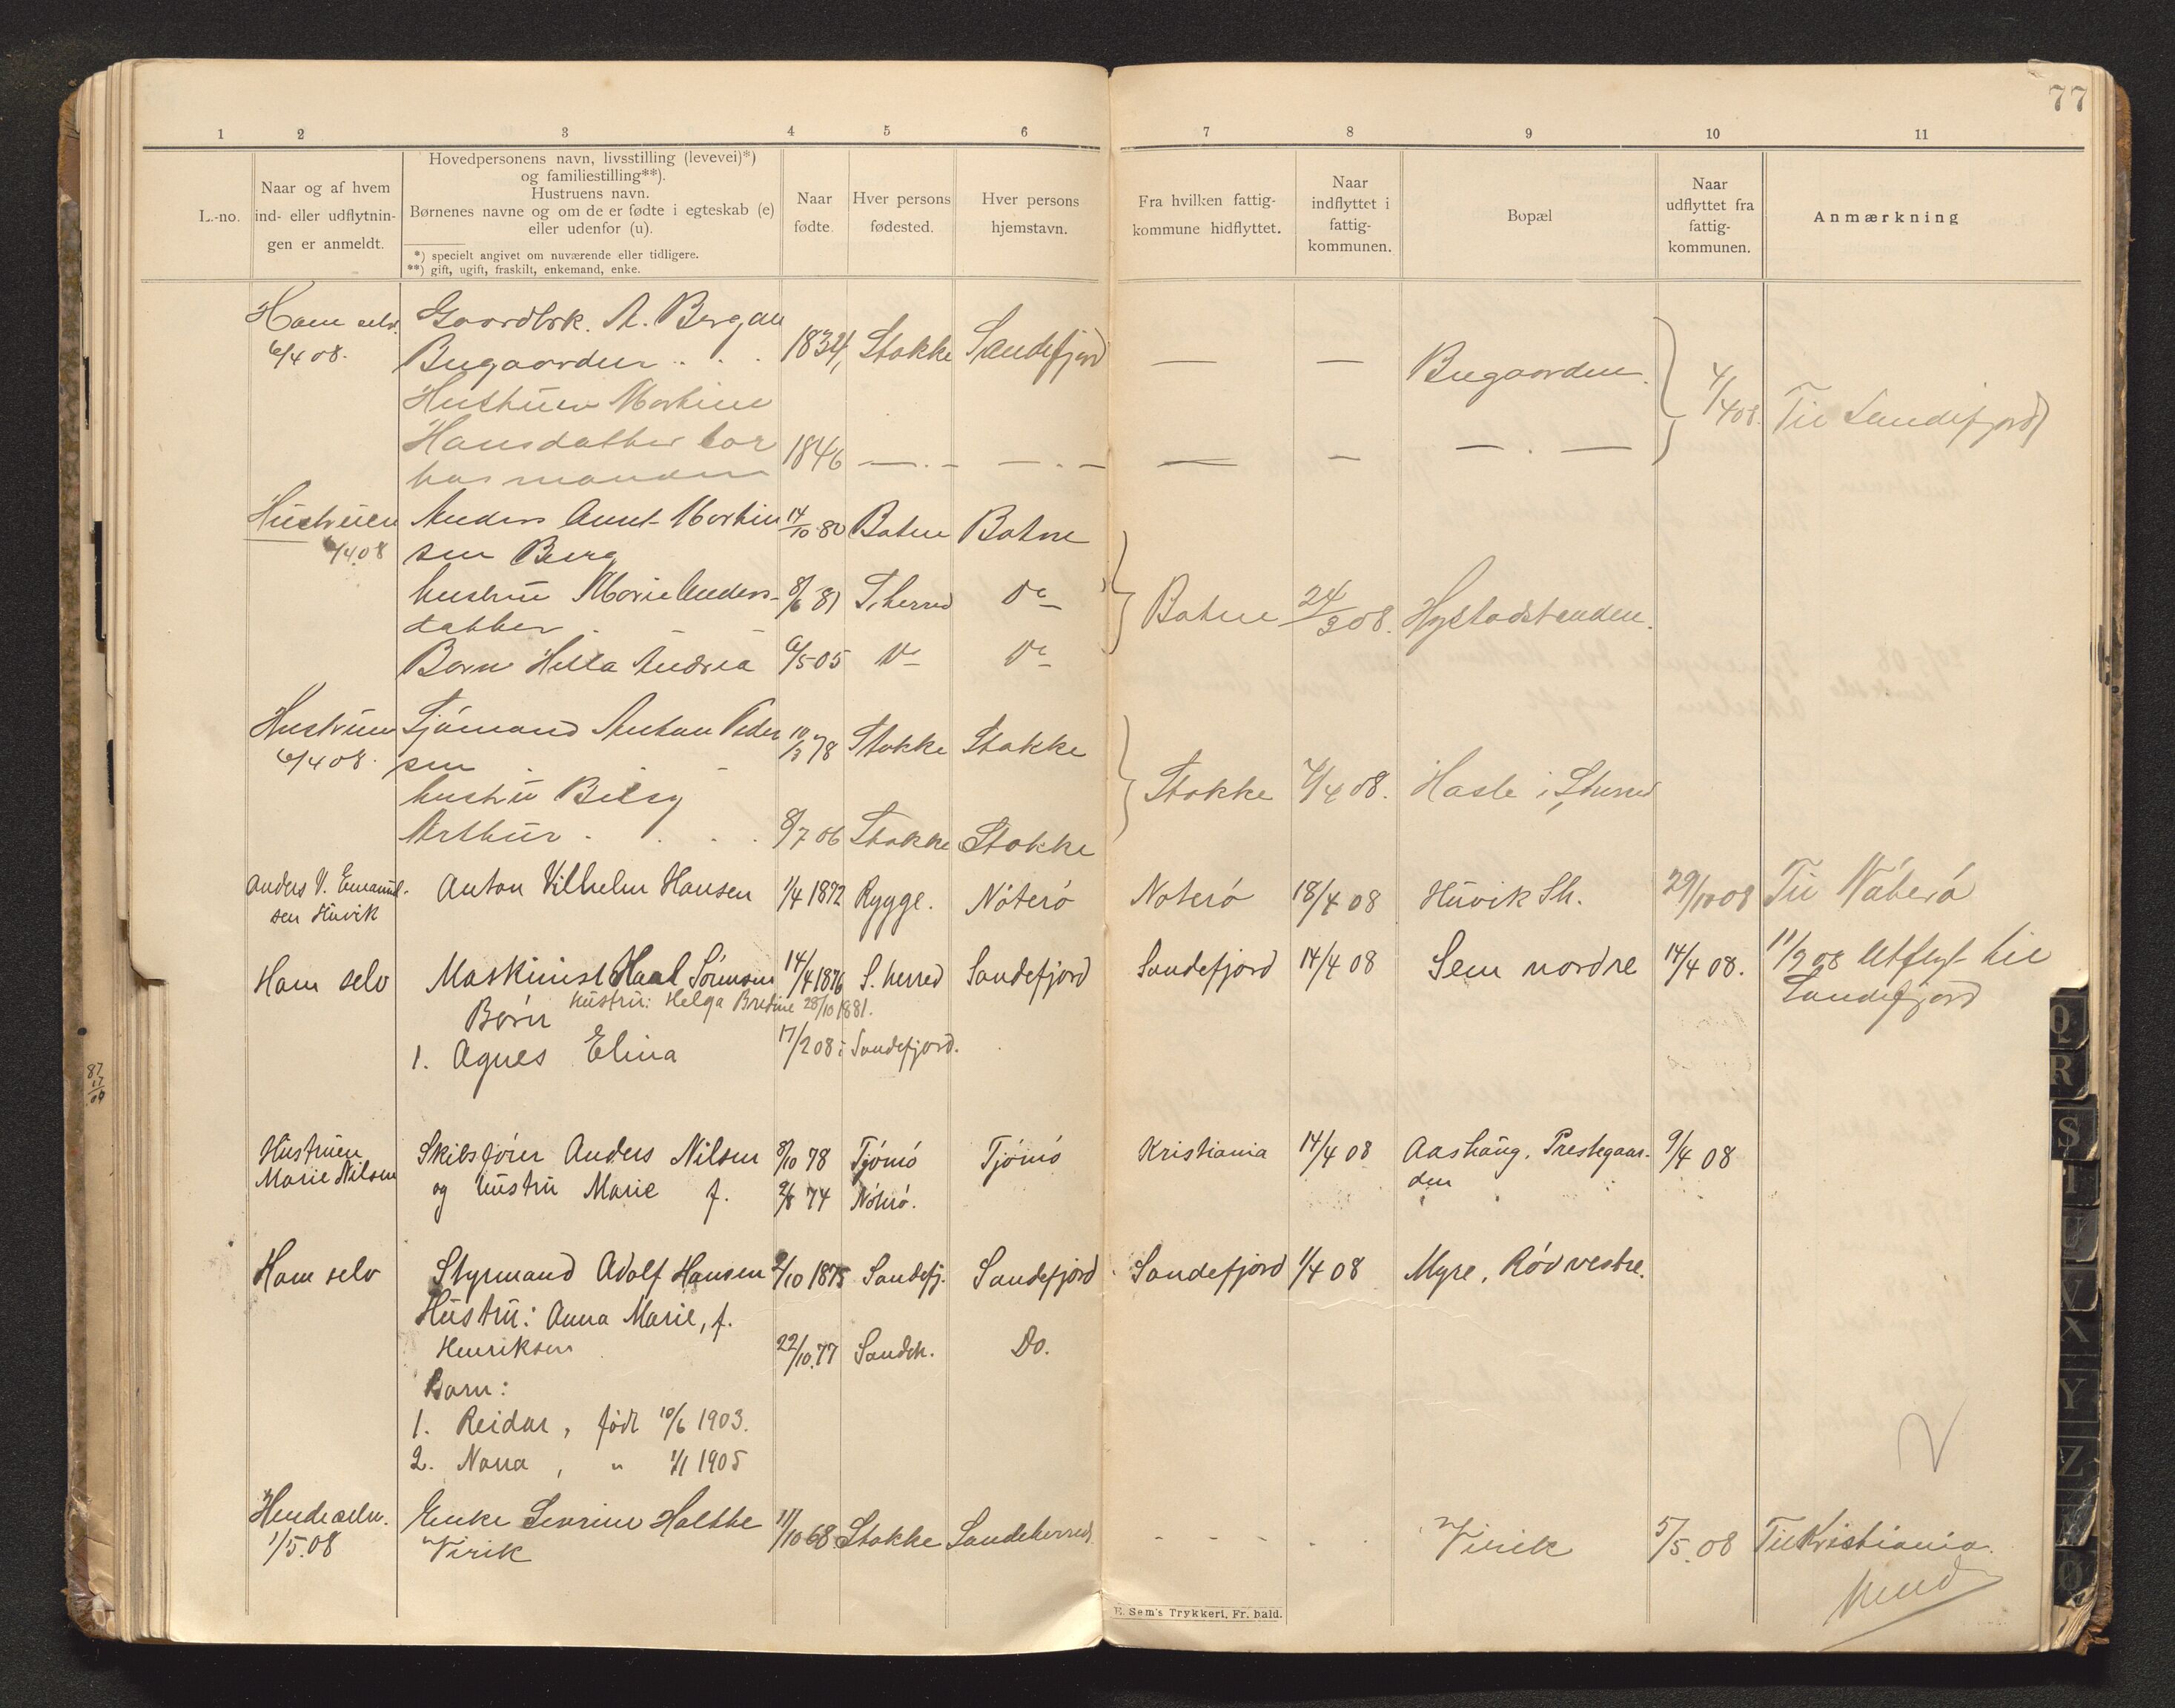 77
1 2 3 4 5 6 7 8 9 10 11
L.-no.
Naar og af hvem
ind- eller udflytnin-
gen er anmeldt.
Hovedpersonens navn, livsstilling (levevei)*)
og familiestilling**).
Hustruens navn.
Børnenes navne og om de er fødte i egteskab (e)
eller udenfor (u).
*) specielt angivet om nuværende eller tidligere.
**) gift, ugift, fraskilt, enkemand, enke.
Naar
fødte.
Hver persons
fødested.
Hver persons
hjemstavn.
Fra hvilken fattig-
kommune hidflyttet.
Naar
indflyttet i
fattig-
kommunen.
Bopæl
Naar
udflyttet fra
fattig-
kommunen.
Anmærkning
Ham selv. Gaardbrk. A. Bergan
6/4 08. Bugaarden . . . 1834, Stokke Sandefjord — — Bugaarden. 4/4 08. Til Sandefjord
Hustruen Martine
Hansdatter bor 1846 —.— —.— — — —.—
hos manden
Hustruen Anders Anut Martin 14/10 80 Botne Botne
/4 08 sen Berg
hustru Marie Anders- 8/6 81 S. herred Do Botne 24/3 08. Hystadstranden.
datter
Barn Hilla Andrea 6/5 05 Do Do
Hustruen Sjømand Anton Peder 10/3 78 Stokke Stokke
6/4 08. sen
hustru Betsy Stokke 4/4 08. Hasle i S.herred
Arthur . . . . 8/7 06 Stokke Stokke
Anders V. Emanuel- Anton Vilhelm Hansen 1/4 1872 Rygge. Nøterø Nøterø 18/4 08 Huvik Sh. 29/10 08 Til Nøterø
sen Huvik
Ham selv Maskinist Sørensen 14/4 1876 S. herred Sandefjord Sandefjord 14/4 08 Sem nordre 14/4 08. 11/9 08 Utflyt til
Sandefjord
hustru: Helga Bredine 28/10 1881.
Børn
1. Agnes Elina 17/2 08 i Sandefjord.
87
17/09
Hustruen Skibsfører Anders Nilsen 8/10 78 Tjømø Tjømø Kristiania 14/4 08 Aashaug, Prestegaar- 9/4 08
Marie Nilsen og hustru Marie f. 2/8 74 Nøterø. den
Ham selv Styrmand Adolf Hansen 2/10 1875 Sandefj. Sandefjord Sandefjord 1/4 08 Myre, Rød vestre.
Hustru: Anna Marie, f.
Henriksen 22/10.77 Sandeh. Do.
Barn:
1. Reidar, født 10/6 1903.
2. Nana, " 1/1 1905
Hende selv. Enke Sevrine Holthe 17/10 68. Stokke Sandeherred - - - . . Virik 5/5.08 Til Kristiania.
1/5.08 Virik
E. Sem's Trykkeri, Fr. hald.
Q
R
S
T
U
V
X
Y
Z
Æ
Ø